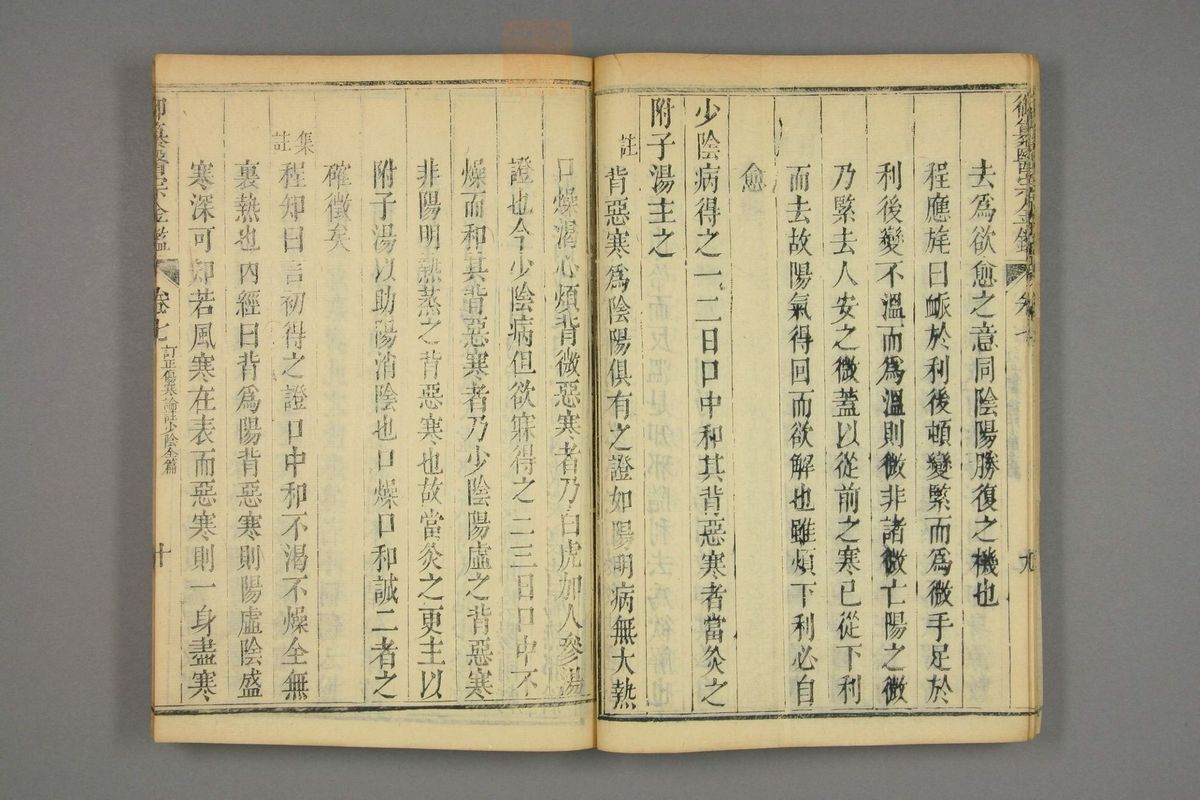 御纂醫宗金鑑 卷七 九
去爲欲愈之意同陰陽勝復之機也
程應旄曰㽲於利後頓變緊而爲微手足於
利後變不溫而爲溫則微非諸微亡陽之微
乃緊去人安之微蓋以從前之寒已從下利
而去故陽氣得回而欲解也雖煩下利必自
愈
少陰病得之一二日口中和其背惡寒者當灸之
附子湯主之
註 背惡寒爲陰陽俱有之證如陽明病無大熱
口燥渴心煩背微惡寒者乃白虎加人參湯
證也今少陰病但欲寐得之二三日口中不
燥而和其背惡寒者乃少陰陽虛之背惡寒
非陽明熱蒸之背惡寒也故當灸之更主以
附子湯以助陽消陰也口燥口和誠二者之
確徵矣
集註 程知曰言初得之證口中和不渴不燥全無
裏熱也內經曰背爲陽背惡寒則陽虛陰盛
寒深可知若風寒在表而惡寒則一身盡寒
御纂醫宗金鑑 卷七 訂正傷寒論註少陰全篇 十